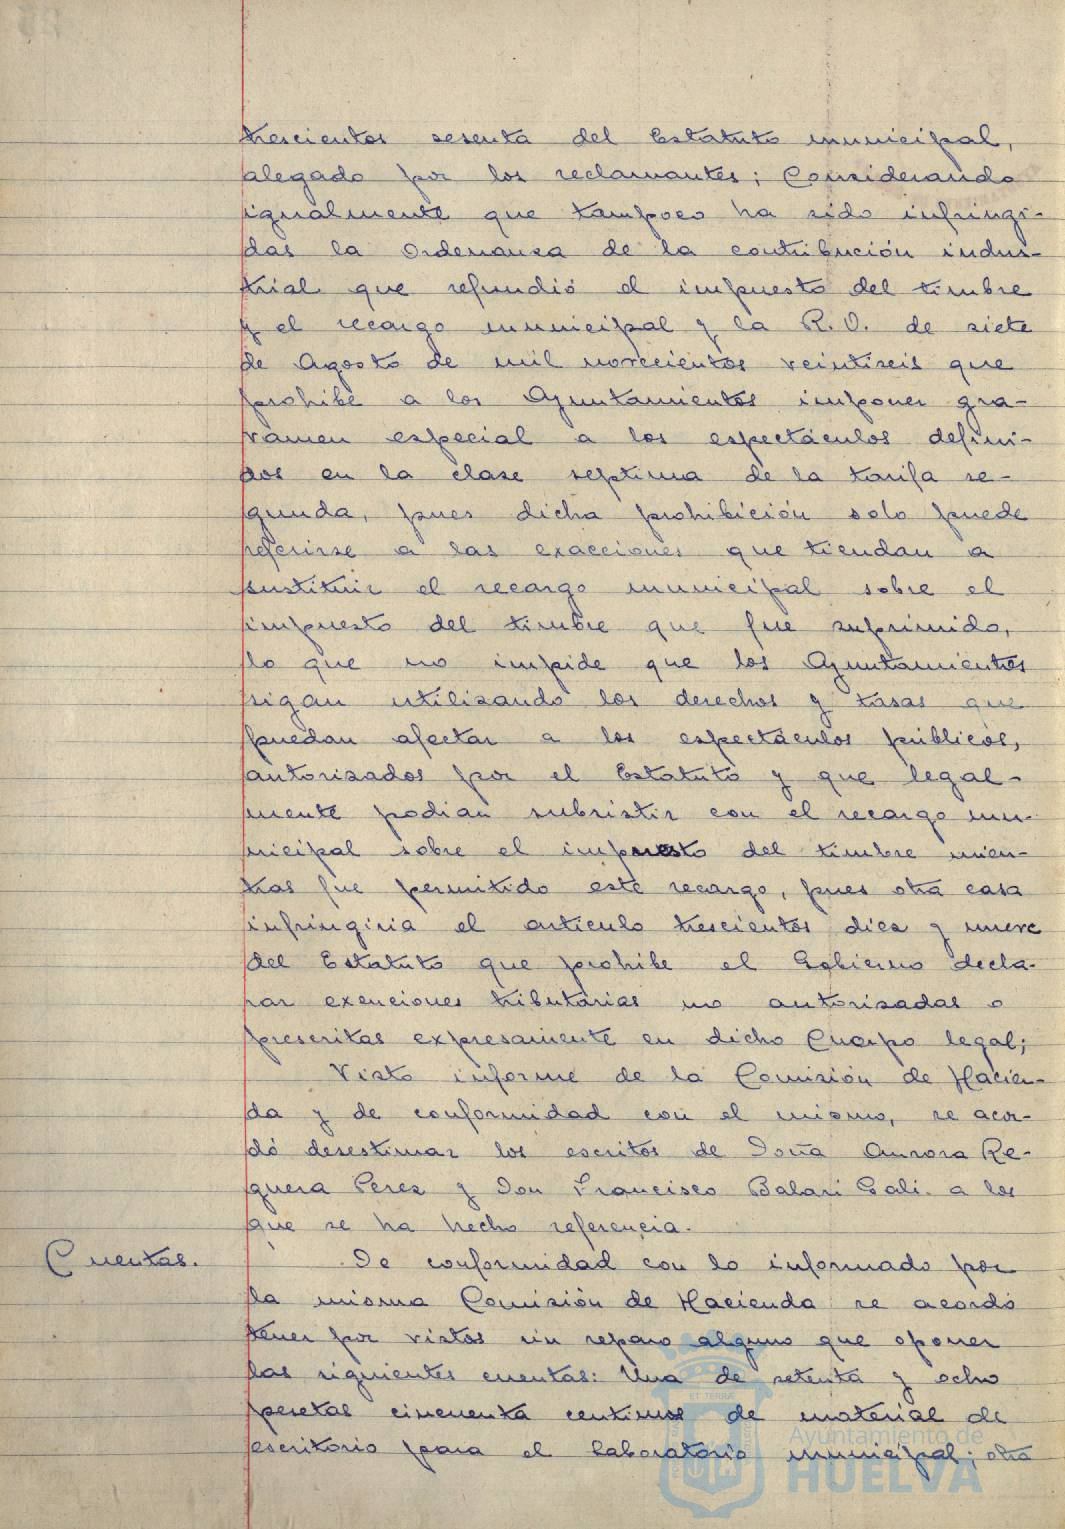 trescientos sesenta del Estatuto municipal,
alegado por los reclamantes; Considerando
igualmente que tampoco ha sido infringi-
das la Ordenanza de la contribución indus-
trial que refundió el impuesto del timbre
y el recargo municipal y la R.O. de siete
de Agosto de mil novecientos veintiseis que
prohibe a los Ayuntamientos imponer gra-
vamen especial a los espectáculos defini-
dos en la clase septima de la tarifa se-
gunda, pues dicha prohibición solo puede
referirse a las exacciones que tiendan a
sustituir el recargo municipal sobre el
impuesto del timbre que fue suprimido,
lo que no impide que los Ayuntamientos
sigan utilizando los derechos y tasas que
puedan afectar a los espectáculos públicos,
autorizados por el Estatuto y que legal-
mente podian subsistir con el recargo mu-
nicipal sobre el impuesto del timbre mien-
tras fue permitido este recargo, pues otra cosa
infringiria el articulo trescientos diez y nueve
del Estatuto que prohibe el Gobierno decla-
rar exenciones tributarias no autorizadas o
prescritas expresamente en dicho Cuerpo legal;
Visto informe de la Comisión de Hacien-
da y de conformidad con el mismo, se acor-
dó desestimar los escritos de Doña Aurora Re-
guera Perez y Don Francisco Balari Gali. a los
que se ha hecho referencia.
Cuentas. De conformidad con lo informado por
la misma Comisión de Hacienda se acordó
tener por vistas sin reparo alguno que oponer
las siguientes cuentas: Una de setenta y ocho
pesetas cincuenta centimos de material de
escritorio para el laboratorio municipal; otra
Ayuntamiento de
HUELVA